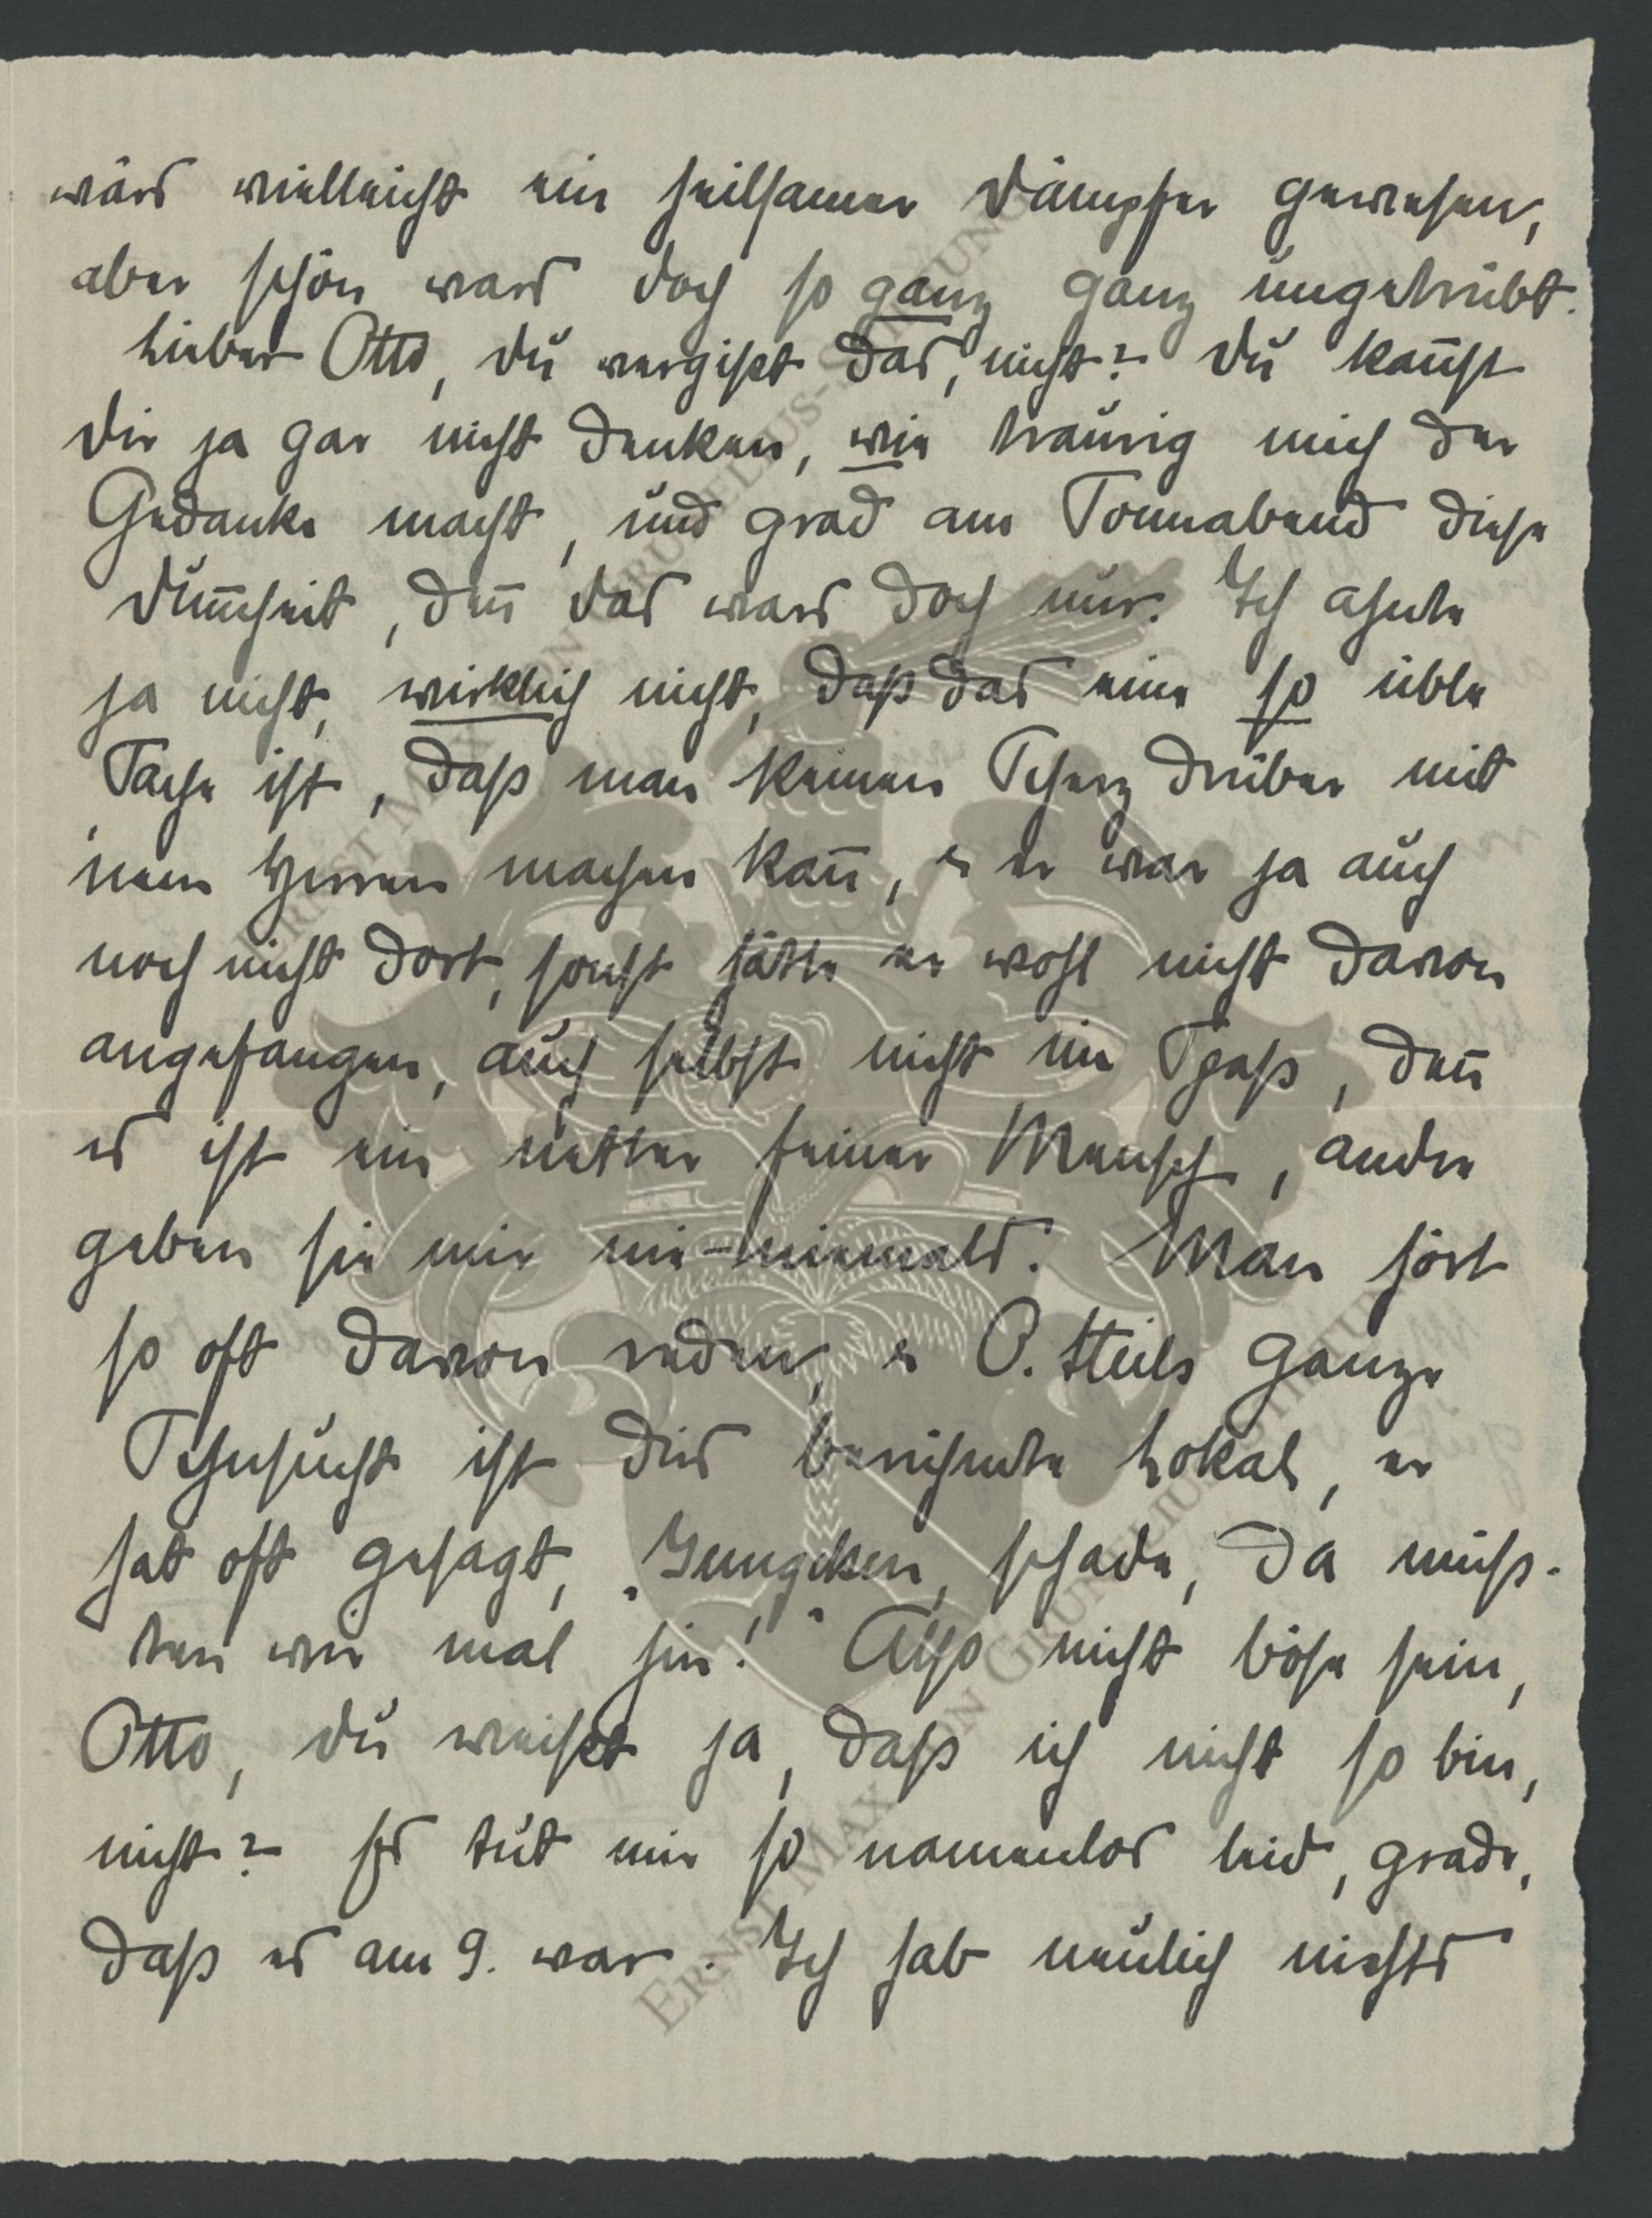 wärs vielleicht ein heilsamer Dämpfer gewesen,
aber schön wars doch so ganz ganz ungetrübt.
Lieber Otto, Du vergißt das, nicht? Du kannst
Dir ja gar nicht denken, wie traurig mich der
Gedanke macht, und grad am Sonnabend diese
Dummheit, denn das wars doch nur. Ich ahnte
ja nicht, wirklich nicht, daß das eine so üble
Sache ist, daß man keinen Scherz drüber mit
'nem Herren machen kann, u er war ja auch
noch nicht dort, sonst hätte er wohl nicht davon
angefangen, auch selbst nicht im Spaß, denn
es ist ein netter feiner Mensch, andre
geben sie mir nie-niemals. Man hört
so oft davon reden, u O. ganze
Sehnsucht ist dies berühmte Lokal, er
hat oft gesagt, „Jungchen, schade, da müß-
ten wir mal hin!" Also nicht böse sein,
Otto, Du weißt ja, daß ich nicht so bin,
nicht? Es tut mir so namenlos leid, grade,
daß es am 9. war. Ich hab neulich nichts
ERNST MAX VON GRUNELIUS-STIFTUNG
ERNST MAX VON GRUNELIUS-STIFTUNG